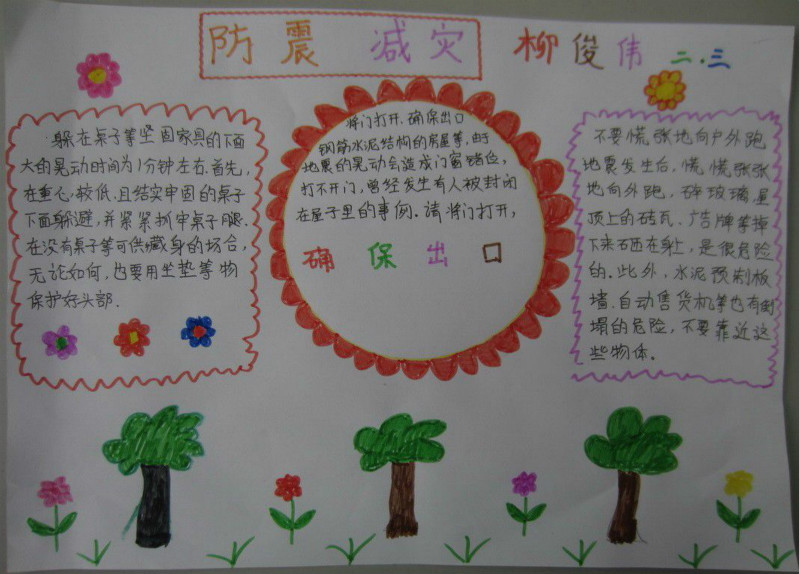 防震减灾 柳俊伟 二.三
躲在桌子等坚固家具的下面
大的晃动时间为1分钟左右.首先,
在重心较低.且结实牢固的桌子
下面躲避,并紧紧抓牢桌子腿.
在没有桌子等可供藏身的场合,
无论如何,也要用坐垫等物
保护好头部.
将门打开.确保出口
钢筋水泥结构的房屋等,由于
地震的晃动会造成门窗错位,
打不开门,曾经发生有人被封闭
在屋子里的事例.请将门打开,
确保出口
不要慌张地向户外跑
地震发生后,慌慌张张
地向外跑,碎玻璃.屋
顶上的砖瓦.广告牌等掉
下来砸在身上,是很危险
的.此外,水泥预制板
墙.自动售货机等也有倒
塌的危险,不要靠近这
些物体.